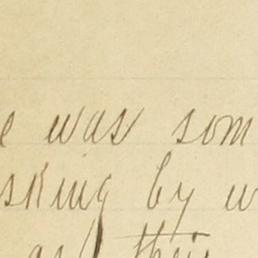 e was som
sking by w